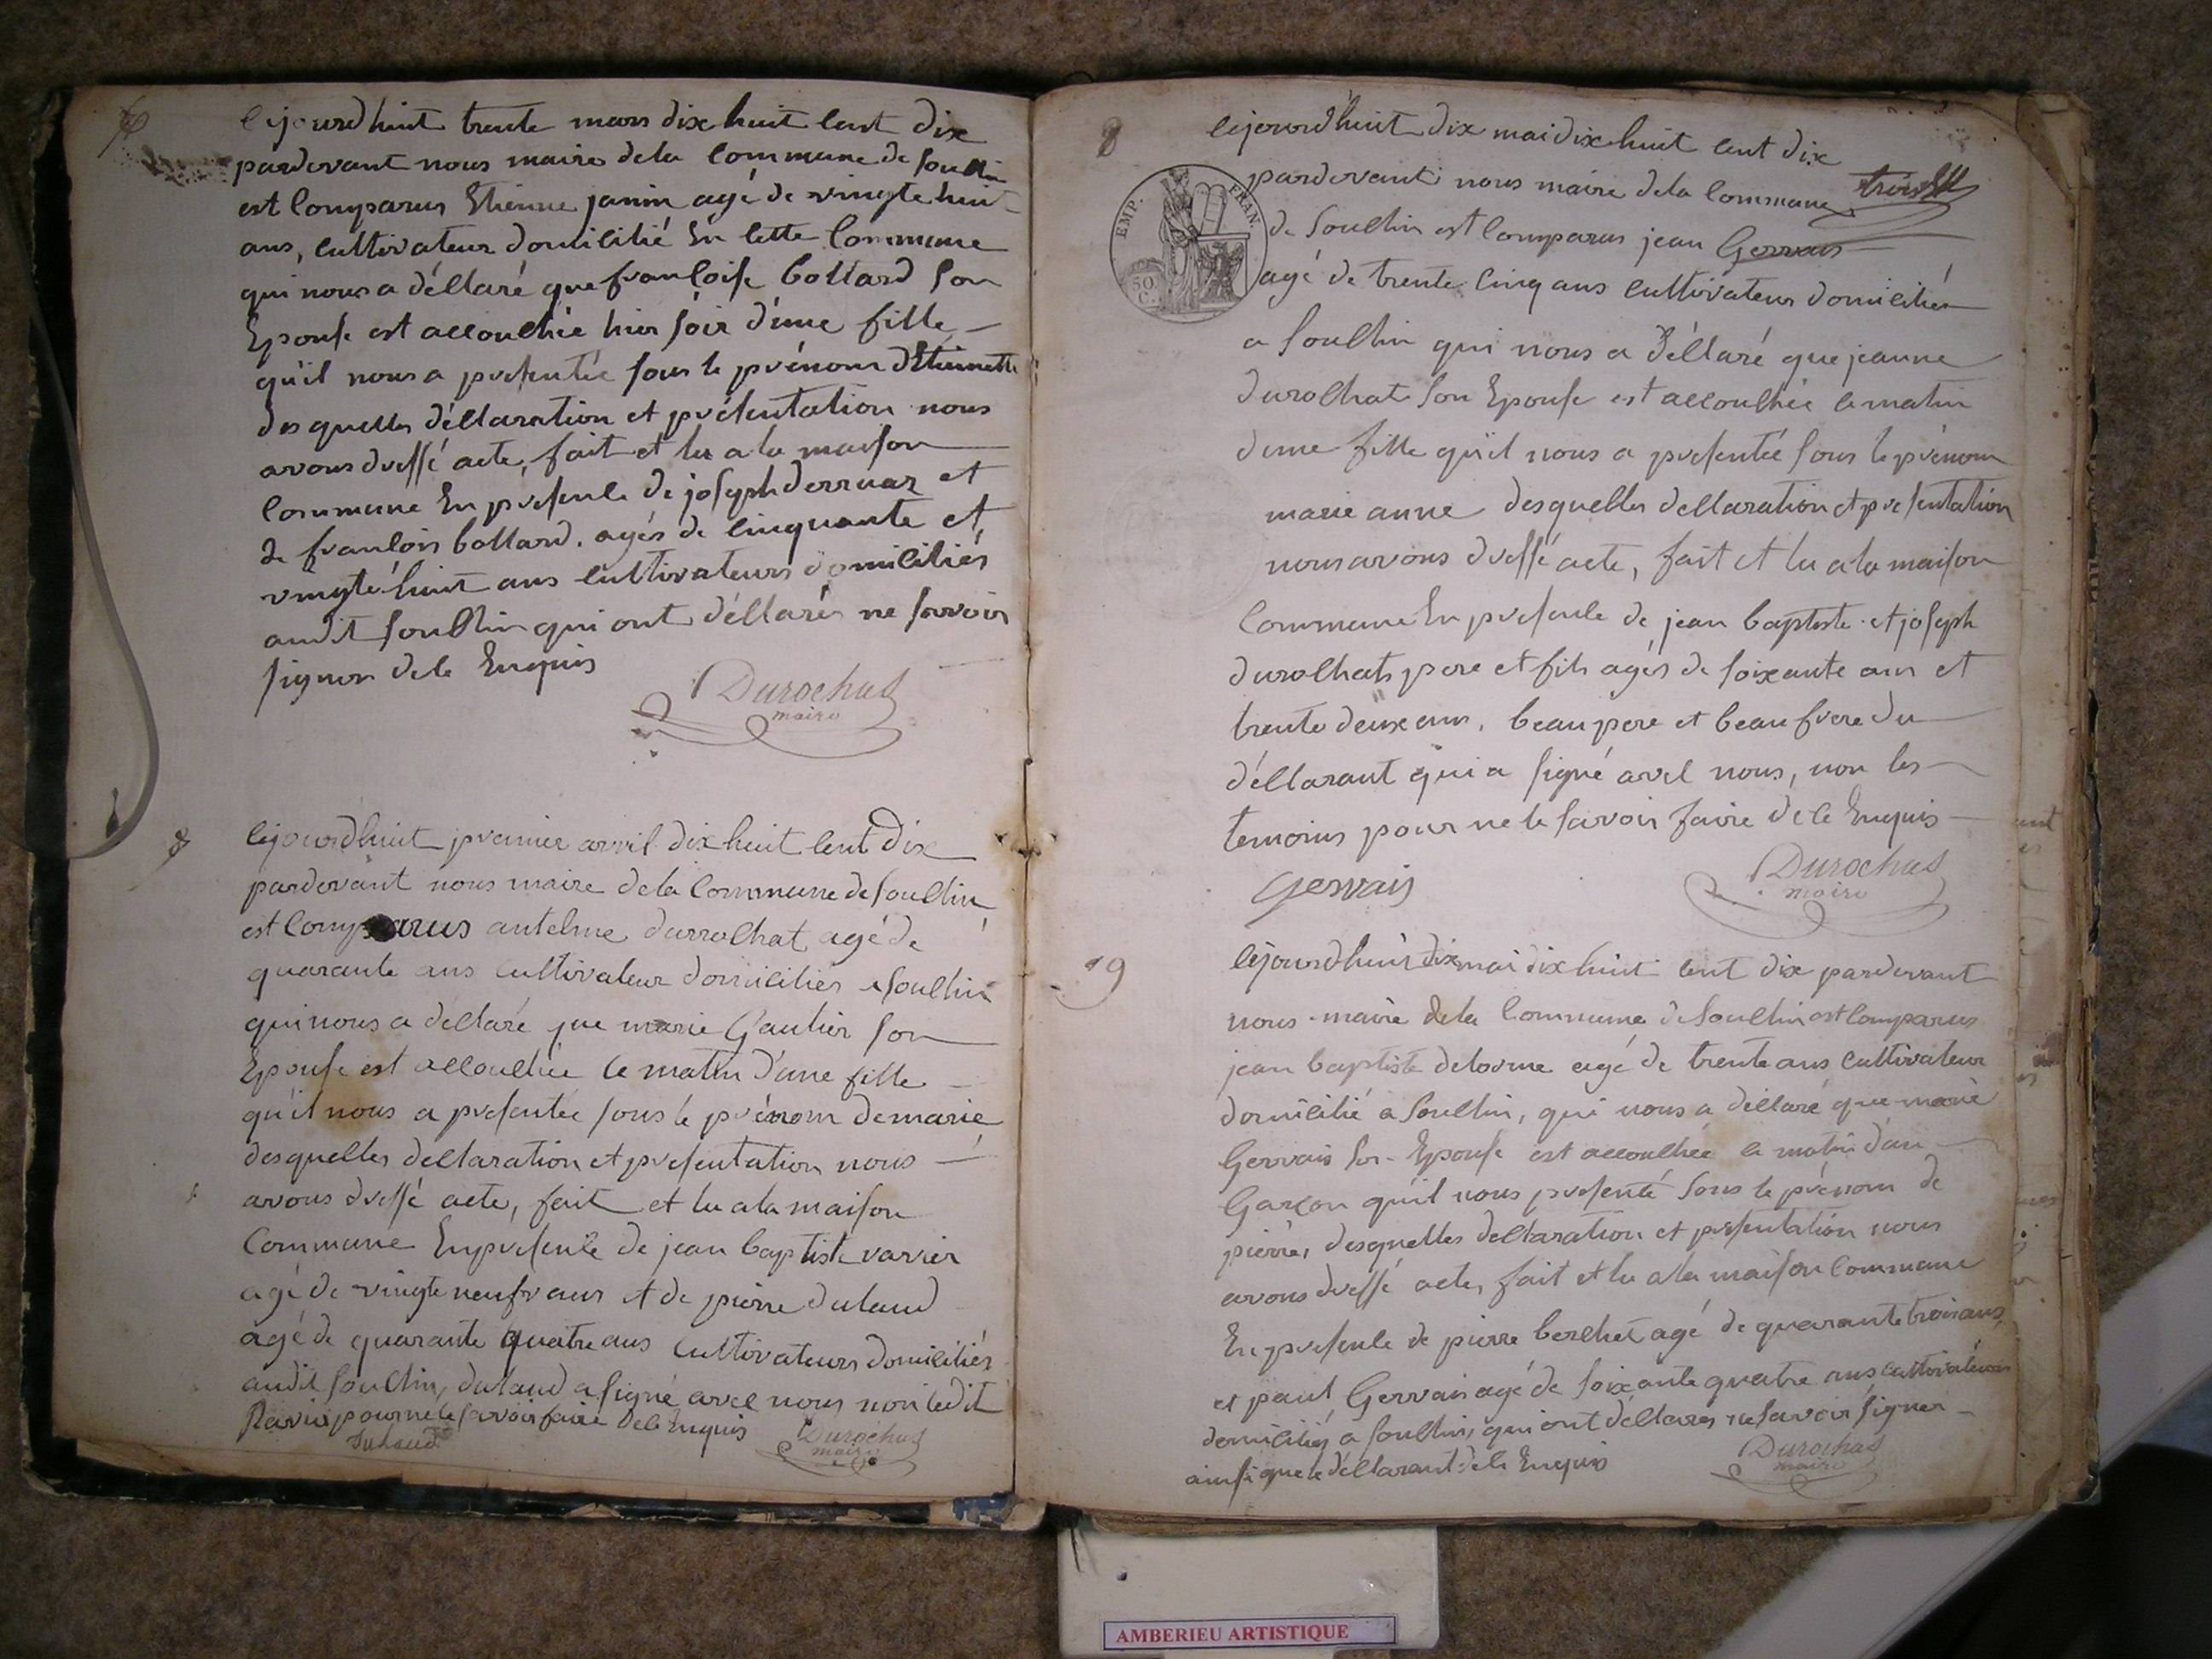 cejourdhuit trente mars dix huit cent dix
pardevant nous maire dela commune de Souclin
est comparus Etienne janin agé de vingte huit
ans, cultivateur domicilié En cette commune
qui nous a déclaré que francoise bollard son
Epouse est accouchée hier soir d'une fille
qu'il nous a presentée sous le prénom d'Etiennette
desquelles déclaration et présentation nous
avons dressé acte, fait et lu a la maison
commune En presence de joseph derruaz et
de francois bollard. agés de cinquante et
vingte huit ans cultivateurs domiciliés
audit Souclin qui ont déclarés ne savoir
signer de ce Enquis
Durochat
maire
7
cejourdhuit premier avril dix huit cent dix
pardevant nous maire dela commune de Souclin
est comparus antelme durrochat agé de
quarante ans cultivateur domiciliés a Souclin
qui nous a déclaré que marie Gautier son
Epouse est accouchée ce matin d'une fille
qu'il nous a presentée sous le prénom de marie
desquelles declaration et presentation nous
avons dressé acte, fait et lu a la maison
commune En presence de jean baptiste varvier
agé de vingte neufv ans et de pierre dulaud
agé de quarante quatre ans cultivateurs domiciliés
audit Souclin, dulaud a signé avec nous non ledit
pour ne le savoir faire de ce Enquis
Durochat
maire
8
cejourd'huit dix mai dix huit cent dix
pardevant nous maire dela commune
EMP. FRAN.
50
C.
de Souclin est comparus jean Gervais
agé de trente cinq ans cultivateur domiciliés
a Souclin qui nous a déclaré que jeanne
durochat son Epouse est accouchée ce matin
d'une fille qu'il nous a presentée sous le prénom
marie anne desquelles declaration et presentation
nous avons dressé acte, fait et lu a la maison
commune En presence de jean baptiste et joseph
durochats pere et fils agés de soixante ans et
trente deux ans, beau pere et beau frere du
déclarant qui a signé avec nous, non les
temoins pour ne le savoir faire de ce Enquis
Gervais
Durochat
maire
9
cejourdhuit dix mai dix huit cent dix pardevant
nous maire dela commune de Souclin est comparus
jean baptiste delorme agé de trente ans cultivateur
domicilié a Souclin, qui nous a déclaré que marie
Gervais son Epouse est accouchée ce matin d'un
Garçon qu'il nous presenté sous le prénom de
pierre, desquelles declaration et presentation nous
avons dressé acte, fait et lu a la maison commune
En presence de pierre berchet agé de quarante trois ans
et paul Gervais agé de soixante quatre ans cultivateurs
domiciliés a Souclin, qui ont déclarés ne savoir signer
ainsi que le déclarant de ce Enquis
Durochat
maire
AMBERIEU ARTISTIQUE